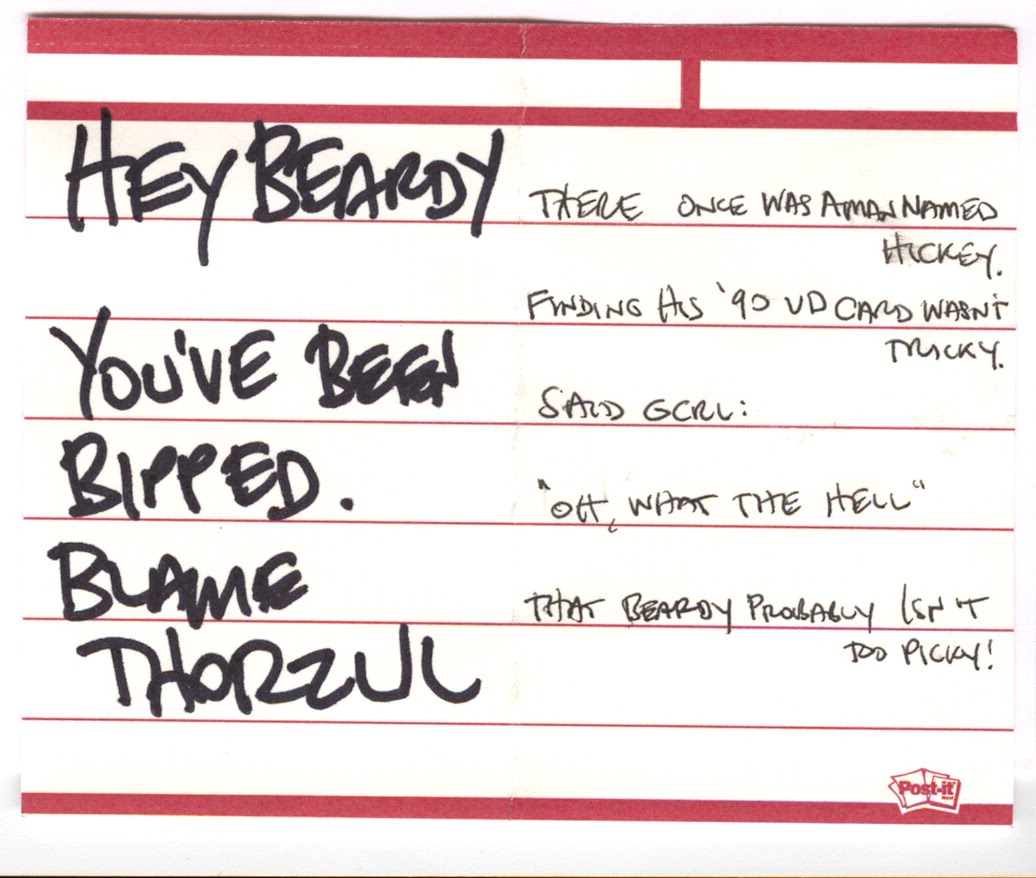 HEY BEARDY
YOU'VE BEEN
BIPPED.
BLAME
THORZUL
THERE ONCE WAS A MAN NAMED
HICKEY.
FINDING HIS '90 UD CARD WASN'T
TRICKY.
SAID GCRL:
"OH, WHAT THE HELL"
THAT BEARDY PROBABLY ISN'T
TOO PICKY!
Post-it